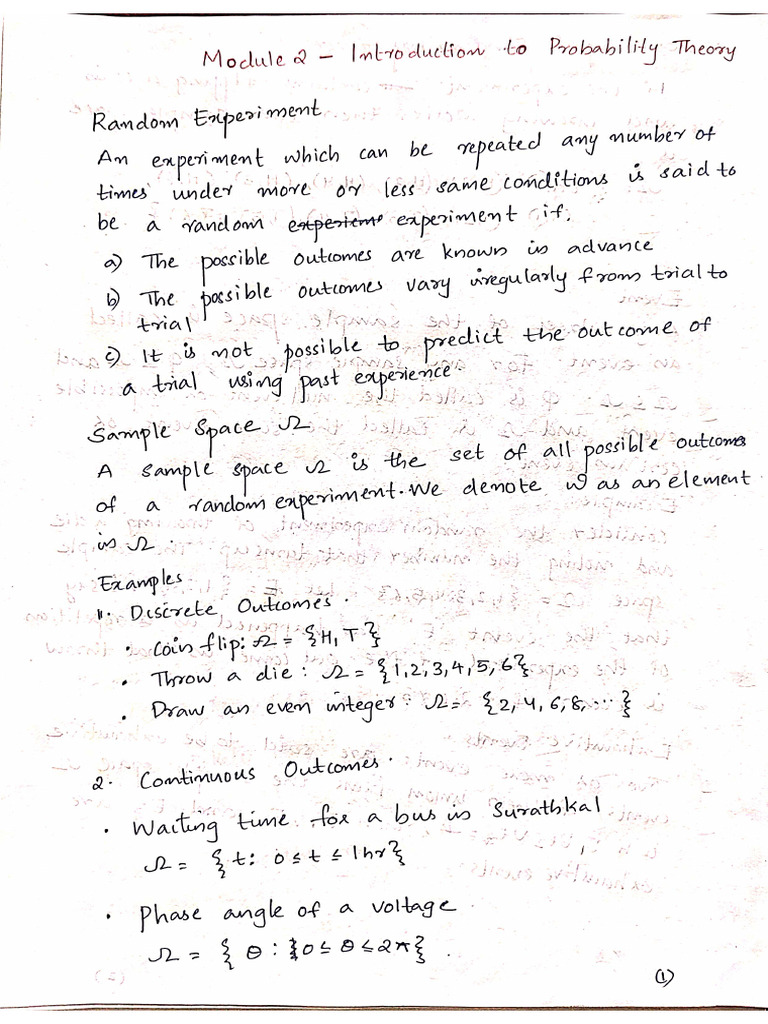 Module 2 – Introduction to Probability Theory
Random Experiment
An experiment which can be repeated any number of
times under more or less same conditions is said to
be a random experiment if:
a) The possible outcomes are known in advance
b) The possible outcomes vary irregularly from trial to
trial
c) It is not possible to predict the outcome of
a trial using past experience
Sample Space Ω
A sample space Ω is the set of all possible outcomes
of a random experiment. We denote ω as an element
in Ω.
Examples
1. Discrete Outcomes.
• Coin flip: Ω = {H, T}
• Throw a die: Ω = {1,2,3,4,5,6}
• Draw an even integer: Ω = {2,4,6,8,...}
2. Continuous Outcomes.
• Waiting time for a bus in Surathkal
Ω = {t: 0 ≤ t ≤ 1hr}
• Phase angle of a voltage
Ω = {θ: {0 ≤ θ ≤ 2π}.
(1)